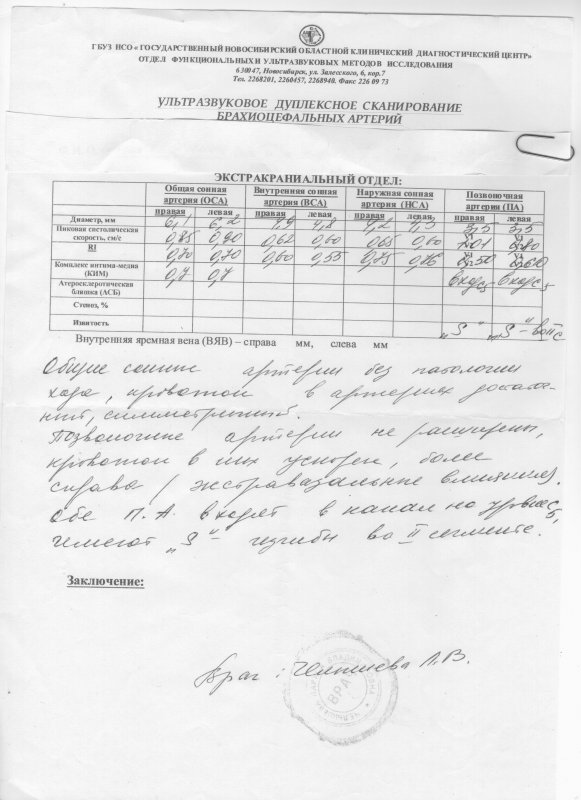 ГБУЗ НСО « ГОСУДАРСТВЕННЫЙ НОВОСИБИРСКИЙ ОБЛАСТНОЙ КЛИНИЧЕСКИЙ ДИАГНОСТИЧЕСКИЙ ЦЕНТР»
ОТДЕЛ ФУНКЦИОНАЛЬНЫХ И УЛЬТРАЗВУКОВЫХ МЕТОДОВ ИССЛЕДОВАНИЯ
630047, Новосибирск, ул. Залесского, 6, кор.7
Тел. 2268201, 2260457, 2268940. Факс 226 09 73
УЛЬТРАЗВУКОВОЕ ДУПЛЕКСНОЕ СКАНИРОВАНИЕ
БРАХИОЦЕФАЛЬНЫХ АРТЕРИЙ
ЭКСТРАКРАНИАЛЬНЫЙ ОТДЕЛ:
Общая сонная артерия (ОСА) Внутренняя сонная артерия (ВСА) Наружная сонная артерия (НСА) Позвоночная артерия (ПА)
правая левая правая левая правая левая правая левая
Диаметр, мм 6,1 6,2 4,9 4,8 4,2 4,3 3,5 3,5
Пиковая систолическая скорость, см/с 0,85 0,90 0,62 0,60 0,65 0,60
RI 0,70 0,70 0,60 0,55 0,75 0,76
Комплекс интима-медиа (КИМ) 0,7 0,7 вход C5 вход C5
Атеросклеротическая бляшка (АСБ)
Стеноз, %
Извитость „S“ „S“ - во II с
Внутренняя яремная вена (ВЯВ) – справа мм, слева мм
Общие сонные артерии без патологии
хода, кровоток в артериях достаточ-
ный, симметричный.
Позвоночные артерии не расширены,
кровоток в них ускорен, более
справа / экстравазальные влияния).
Обе П.А. входят в канал на уровне C5,
имеют „S“ изгибы во II сегменте.
Заключение:
Врач:
ВРАЧ